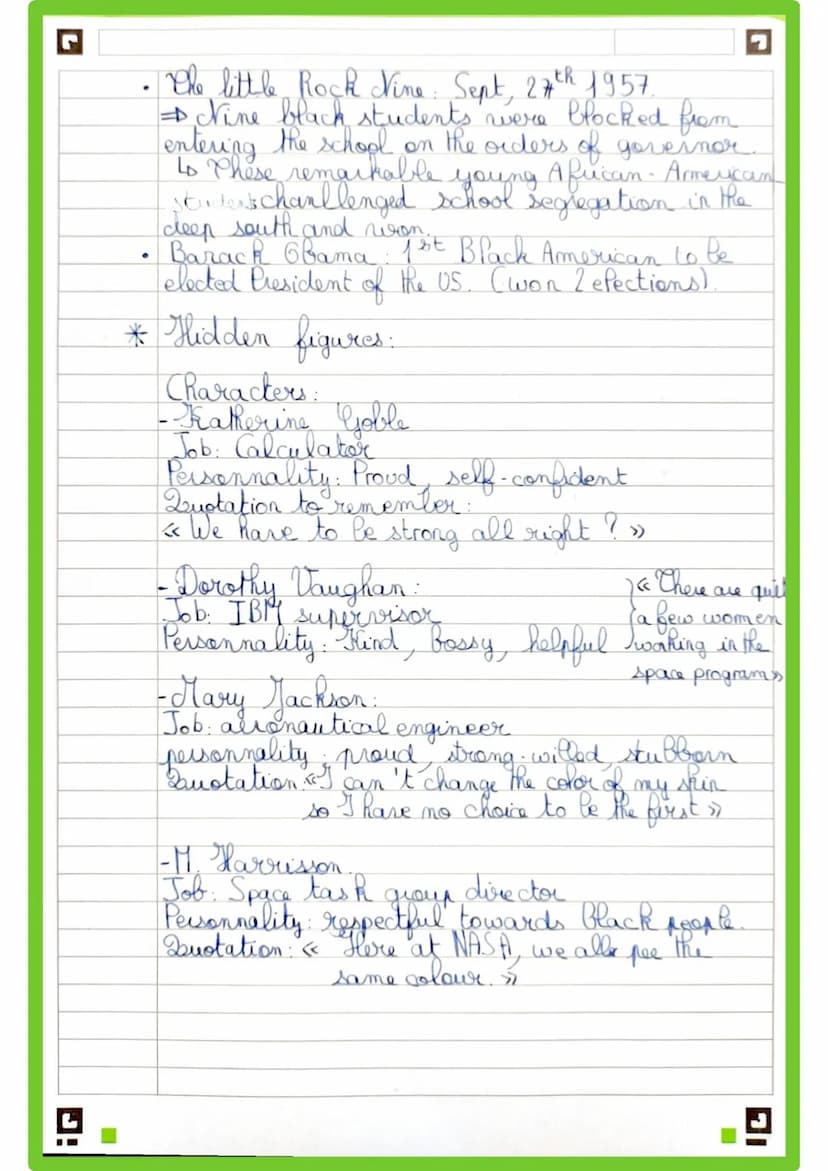 • The little Rock Nine : Sept, 27th 1957.
⇒ Nine black students were blocked from
entering the school on the orders of governor.
↳ These remarkable young African-American
students chanllenged school segregation in the
deep south and won.
• Barack Obama : 1st Black American to be
elected President of the US. (won 2 elections).
* Hidden figures :
Characters :
- Katherine Goble
Job : Calculator
Personnality : Proud, self-confident
Quotation to remember :
« We have to be strong all right ? »
- Dorothy Vaughan :
Job : IBM supervisor
Personnality : Kind, bossy, helpful
« There are quit
a few women
working in the
space program »
- Mary Jackson :
Job : aeronautical engineer
personnality : proud, strong-willed, stubborn
Quotation : « I can't change the color of my skin
so I have no choice to be the first »
- M. Harrisson.
Job : Space task group director
Personnality : respectful towards Black people.
Quotation : « Here at NASA, we all pee the
same colour. »